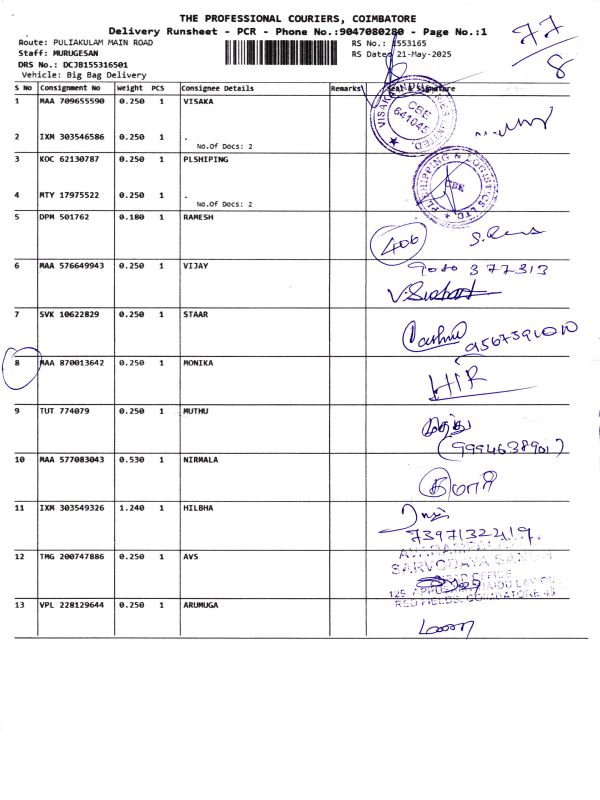 THE PROFESSIONAL COURIERS, COIMBATORE
Delivery Runsheet - PCR - Phone No.:9047080280 - Page No.:1
77/8
Route: PULIAKULAM MAIN ROAD
RS No.: 1553165
Staff: MURUGESAN
RS Date: 21-May-2025
DRS No.: DCJB155316501
Vehicle: Big Bag Delivery
S No Consignment No Weight PCS Consignee Details Remarks Seal & Signature
1 MAA 709655590 0.250 1 VISAKA
VISAKA LIMITED. CBE 641045
2 IXM 303546586 0.250 1 .
No.Of Docs: 2
3 KOC 62130787 0.250 1 PLSHIPING
PL SHIPPING & LOGISTICS LTD. CBE
4 MTY 17975522 0.250 1 .
No.Of Docs: 2
5 DPM 501762 0.180 1 RAMESH
406
6 MAA 576649943 0.250 1 VIJAY
9080 377313
7 SVK 10622829 0.250 1 STAAR
9567391010
8 MAA 870013642 0.250 1 MONIKA
HIR
9 TUT 774079 0.250 1 MUTHU
முத்து
(9994638901)
10 MAA 577083043 0.530 1 NIRMALA
11 IXM 303549326 1.240 1 HILBHA
7397132219.
12 TMG 200747886 0.250 1 AVS
SARVODAYA
RED FIELDS, COIMBATORE 45
13 VPL 228129644 0.250 1 ARUMUGA